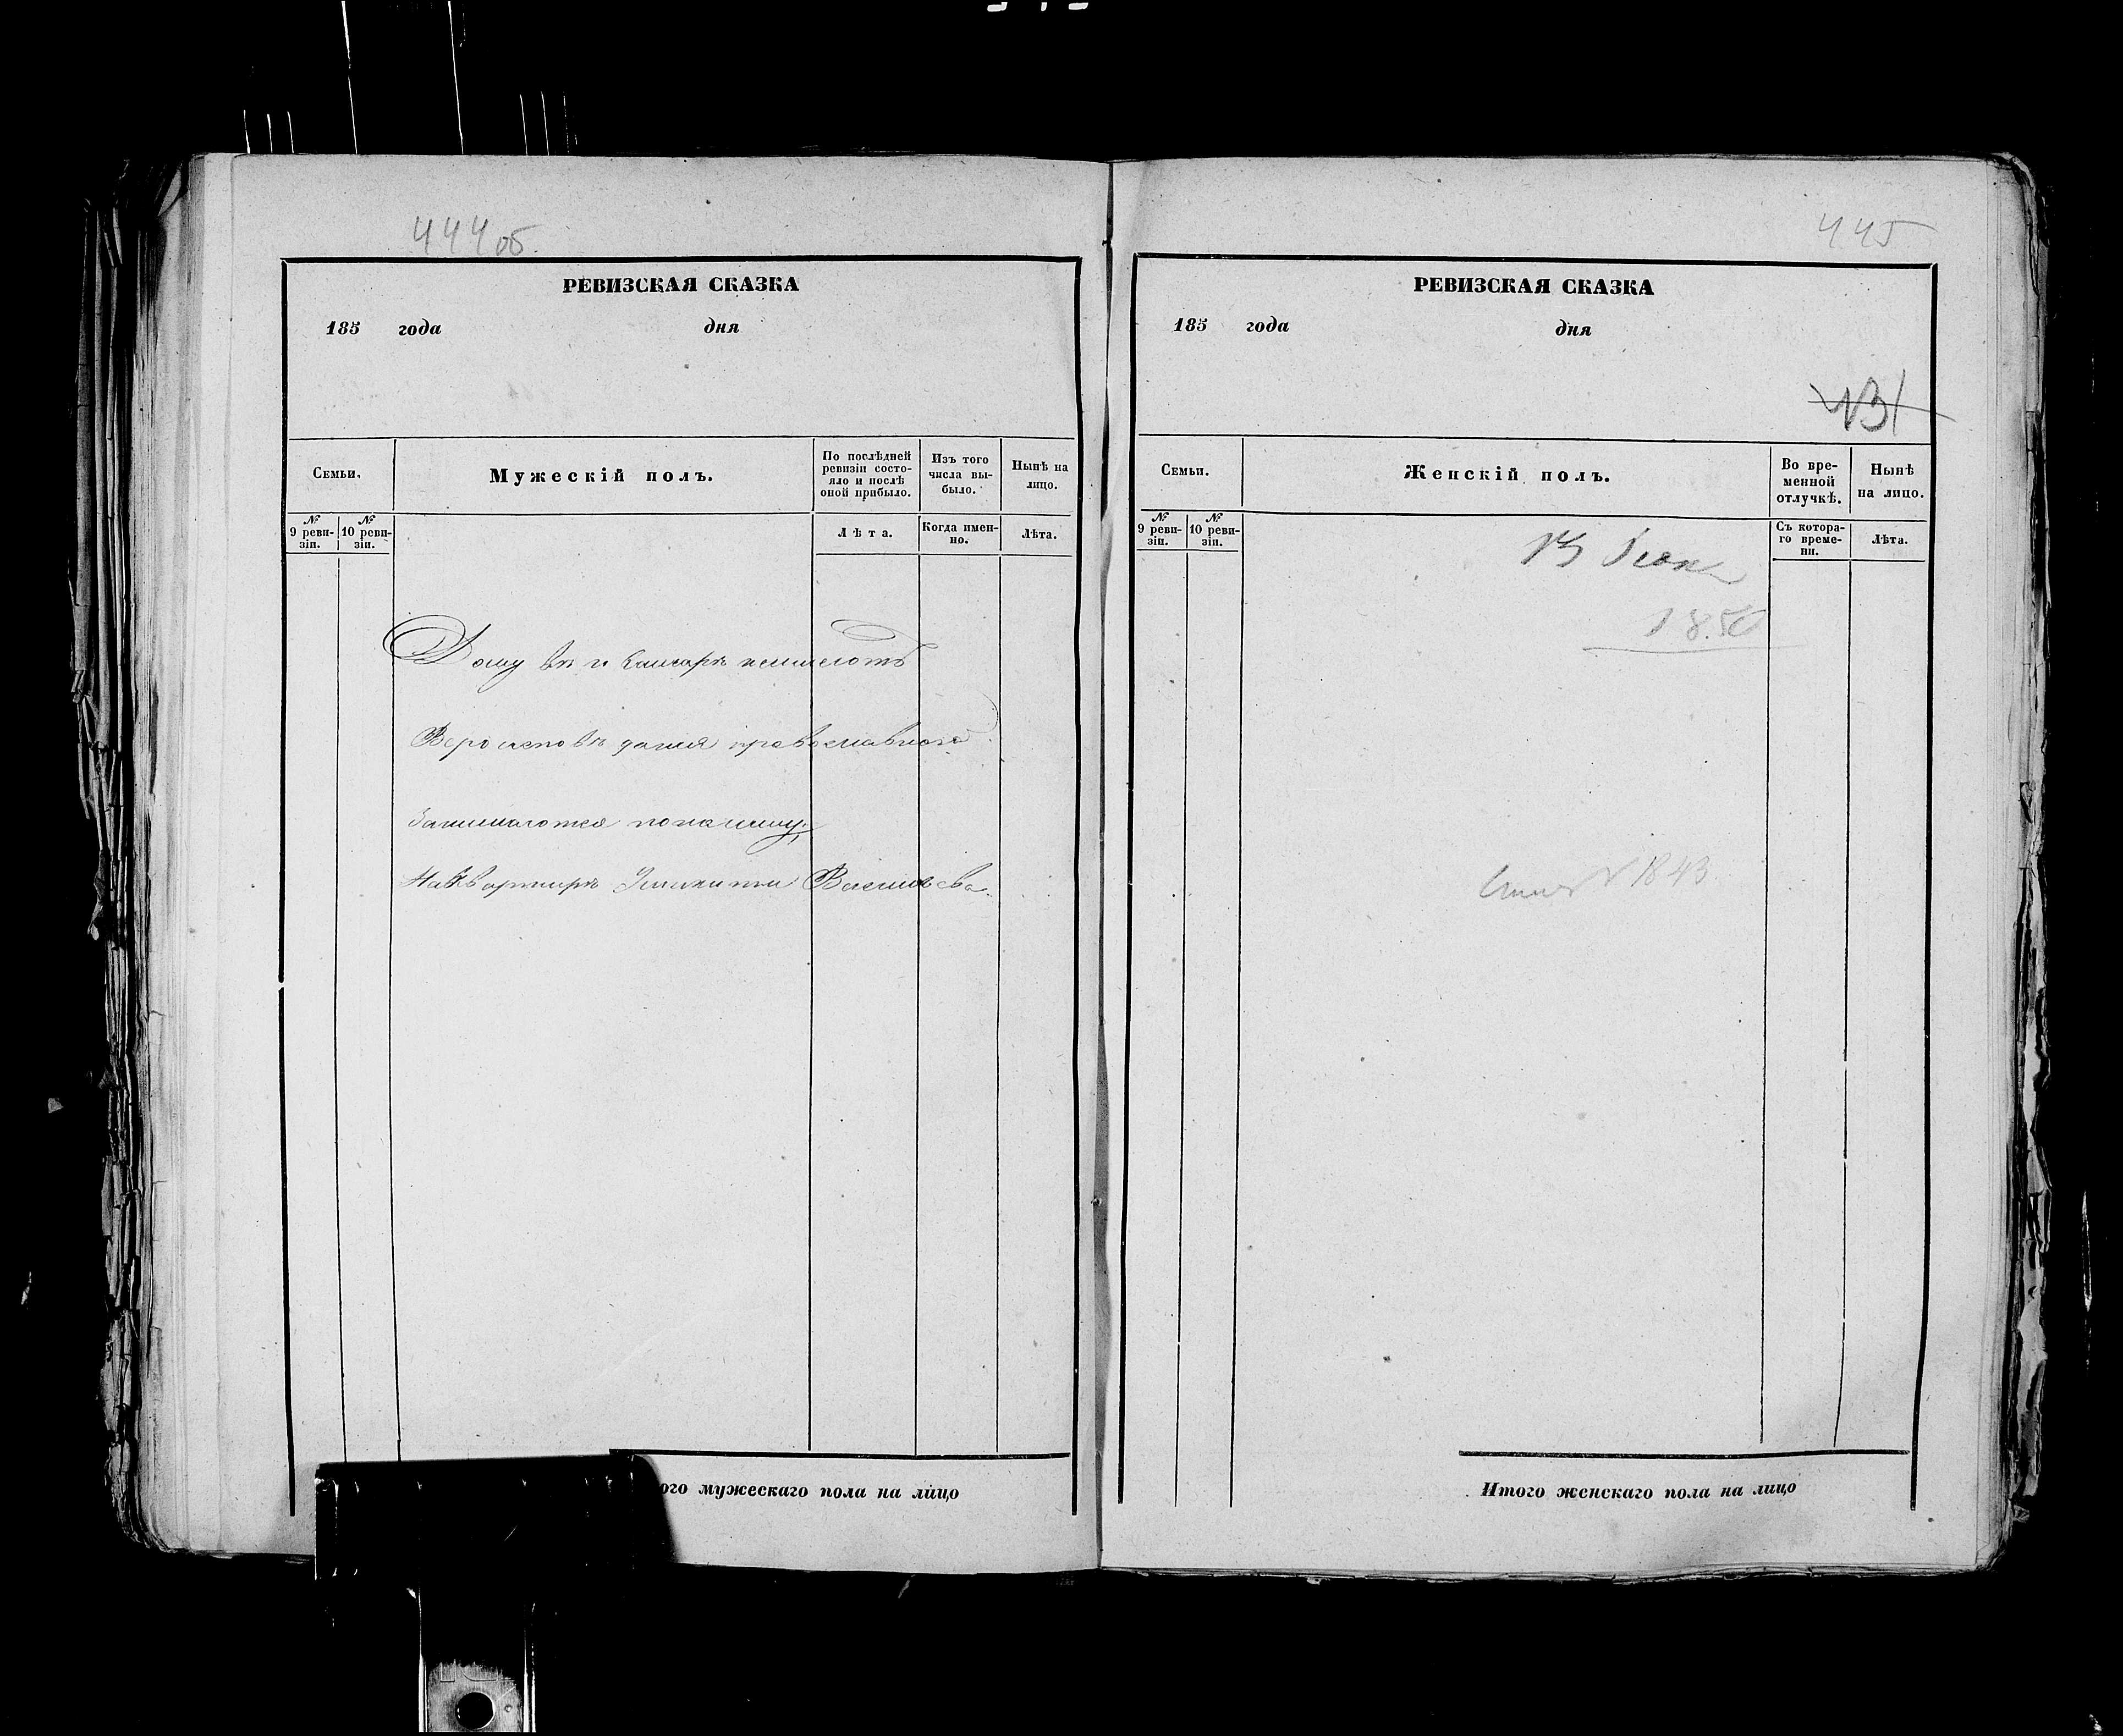 444об.
РЕВИЗСКАЯ СКАЗКА
185 года дня
Семьи.
Мужескій полъ.
По послѣдней ревизіи состо-
яло и послѣ оной прибыло.
Изъ того числа вы-
было.
Нынѣ на лицо.
№ 9 реви-
зіи.
№ 10 реви-
зіи.
Лѣта.
Когда имен-
но.
Лѣта.
Дому въ г. неимеютъ
Вероисповѣдания православного
Занимаются
На Квартирѣ Васильева
ого мужескаго пола на лицо
445
РЕВИЗСКАЯ СКАЗКА
185 года дня
131
Семьи.
Женскій полъ.
Во вре-
менной отлучкѣ.
Нынѣ на лицо.
№ 9 реви-
зіи.
№ 10 реви-
зіи.
Съ котора-
го време-
ни.
Лѣта.
1850
1843
Итого женскаго пола на лицо